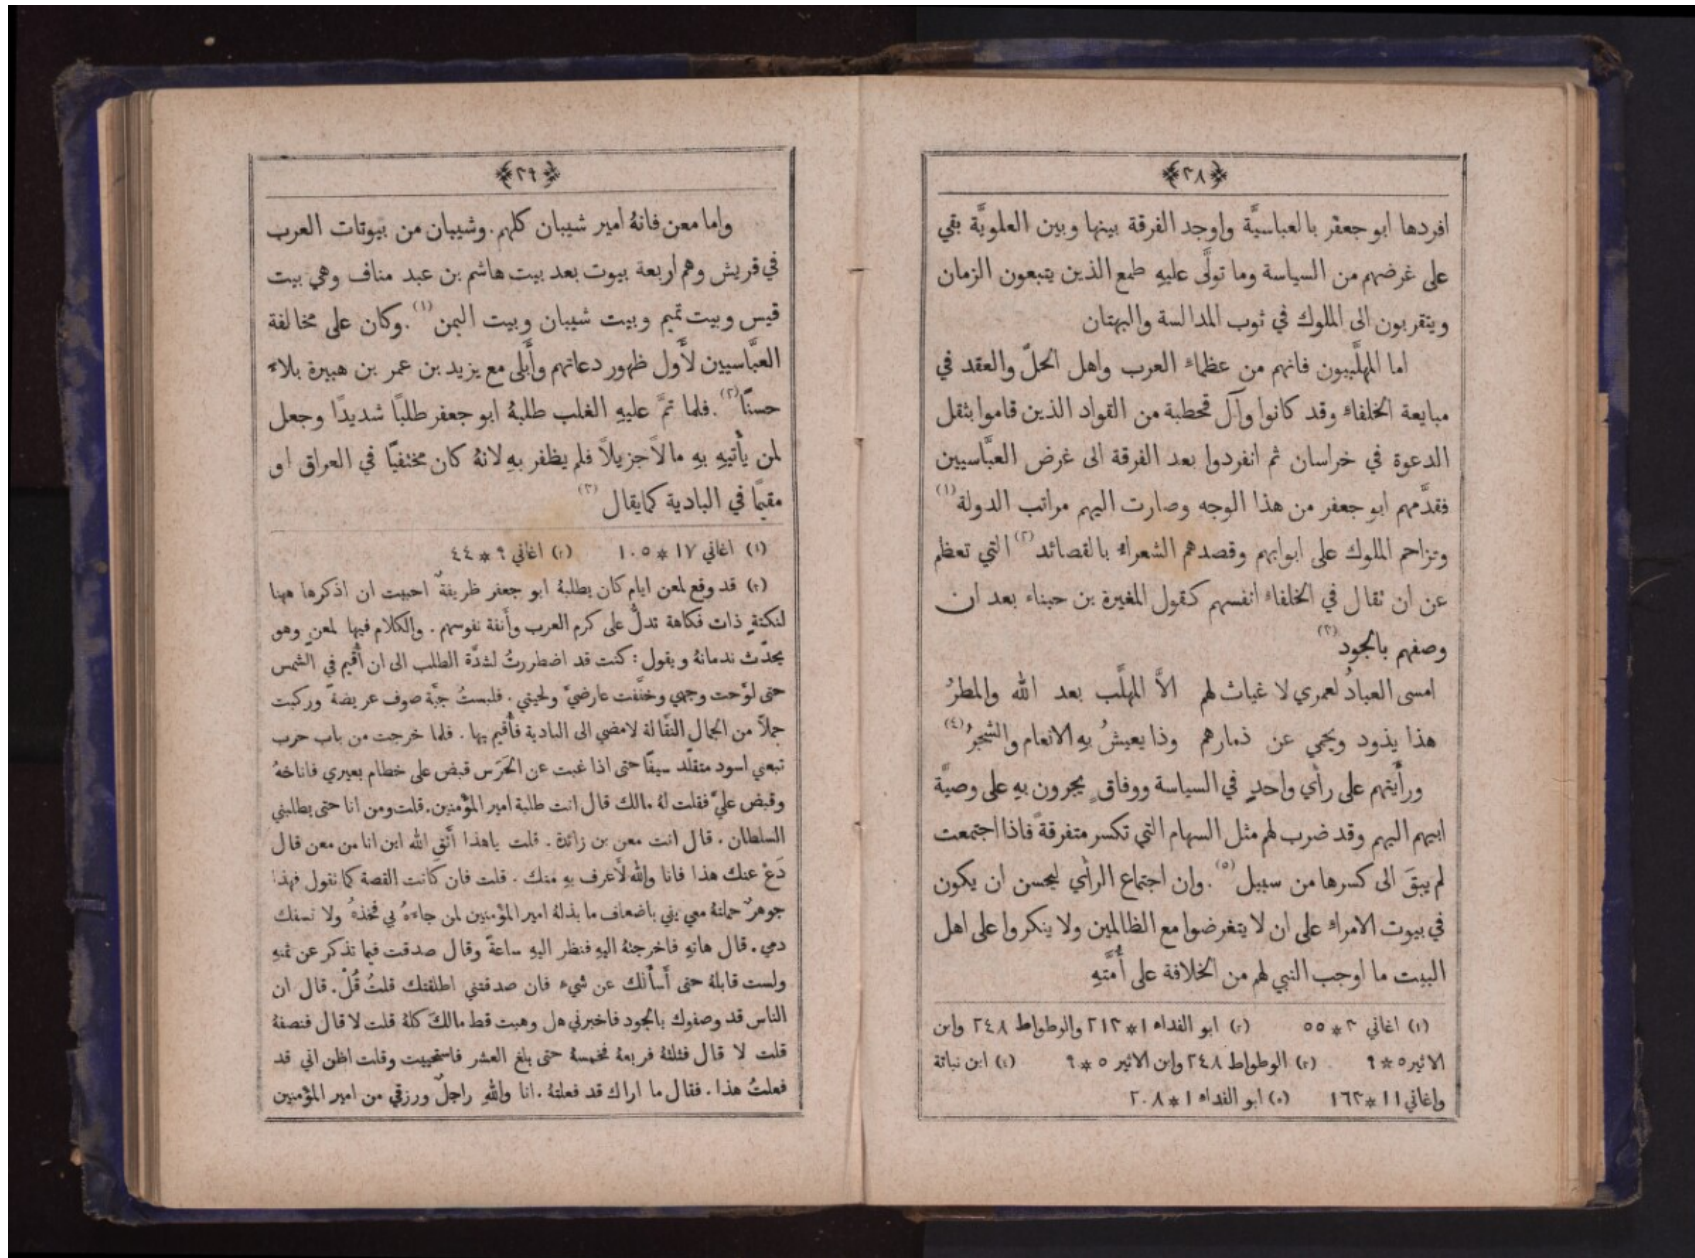 ﴿٢٨﴾
افردها ابو جعفر بالعباسيَّة واوجد الفرقة بينها وبين العلويَّة بقي
على غرضهم من السياسة وما تولَّى عليهِ طمع الذين يتبعون الزمان
ويتقربون الى الملوك في ثوب المدالسة والبهتان
اما المهلَّبيون فانهم من عظماء العرب واهل الحلّ والعقد في
مبايعة الخلفاء وقد كانوا وآل قحطبة من القواد الذين قاموا بثقل
الدعوة في خراسان ثم انفردوا بعد الفرقة الى غرض العبَّاسيين
فقدَّمهم ابو جعفر من هذا الوجه وصارت اليهم مراتب الدولة (١)
وتزاحم الملوك على ابوابهم وقصدهم الشعراء بالقصائد (٢) التي تعظم
عن ان تقال في الخلفاء انفسهم كقول المغيرة بن حبناء بعد ان
وصفهم بالجود (٣)
امسى العبادُ لعمري لا غياث لهم الاَّ المهلَّب بعد الله والمطرُ
هذا يذود ويحمي عن ذمارهم وذا يعيشُ بهِ الانعام والشجرُ (٤)
ورأَيتهم على رأيٍ واحدٍ في السياسة ووفاقٍ يجرون بهِ على وصيَّة
ابيهم اليهم وقد ضرب لهم مثل السهام التي تكسر متفرقةً فاذا اجتمعت
لم يبقَ الى كسرها من سبيل (٥). وان اجتماع الرأي ليحسن ان يكون
في بيوت الامراء على ان لا يتغرضوا مع الظالمين ولا ينكروا على اهل
البيت ما اوجب النبي لهم من الخلافة على أُمَّتهِ
(١) اغاني ٣*٥٥ (٢) ابو الفداء ١*٢١٣ والوطواط ٢٤٨ وابن
الاثير ٥*٩ (٣) الوطواط ٢٤٨ وابن الاثير ٥*٩ (٤) ابن نباتة
واغاني ١١*١٦٣ (٥) ابو الفداء ١*٢٠٨
﴿٢٩﴾
واما معن فانهُ امير شيبان كلهم. وشيبان من بيوتات العرب
في قريش وهم اربعة بيوت بعد بيت هاشم بن عبد مناف وهي بيت
قيس وبيت تميم وبيت شيبان وبيت اليمن (١). وكان على مخالفة
العبَّاسيين لأَول ظهور دعاتهم وأَبلى مع يزيد بن عمر بن هبيرة بلاء
حسنًا (٢). فلما تمَّ عليهِ الغلب طلبهُ ابو جعفر طلبًا شديدًا وجعل
لمن يأْتيهِ بهِ مالاً جزيلاً فلم يظفر بهِ لانهُ كان مختفيًا في العراق او
مقيمًا في البادية كما يقال (٣)
(١) اغاني ١٧*١٠٥ (٢) اغاني ٩*٤٤
(٣) قد وقع لمعن ايام كان يطلبهُ ابو جعفر ظريفةٌ احببت ان اذكرها ههنا
لنكتةٍ ذات فكاهة تدلُّ على كرم العرب وأَنفة نفوسهم. والكلام فيها لمعنٍ وهو
يحدّث ندمانهُ ويقول: كنت قد اضطررتُ لشدَّة الطلب الى ان أُقيم في الشمس
حتى لوَّحت وجهي وخفَّفت عارضيَّ ولحيتي. فلبستُ جبَّة صوف عريضةً وركبت
جملاً من الجمال النقَّالة لامضي الى البادية فأُقيم بها. فلما خرجت من باب حرب
تبعني اسود متقلّد سيفًا حتى اذا غبت عن الحَرَس قبض على خطام بعيري فاناخهُ
وقبض عليَّ فقلت لهُ مالك قال انت طلبة امير المؤمنين. قلت ومن انا حتى يطلبني
السلطان. قال انت معن بن زائدة. قلت يا هذا اتَّقِ الله اين انا من معن قال
دَعْ عنك هذا فانا والله لأَعرف بهِ منك. قلت فان كانت القصة كما تقول فهذا
جوهرٌ حملتهُ معي يفي باضعاف ما بذلهُ امير المؤمنين لمن جاءهُ بي فخذهُ ولا تسفك
دمي. قال هاتهِ فاخرجتهُ اليهِ فنظر اليهِ ساعةً وقال صدقت فيما تذكر عن ثمنهِ
ولست قابلهُ حتى أَسأَلك عن شيء فان صدقتني اطلقتك قلتُ قُلْ. قال ان
الناس قد وصفوك بالجود فاخبرني هل وهبت قط مالكَ كلهُ قلت لا قال فنصفهُ
قلت لا قال فثلثهُ فربعهُ فخمسهُ حتى بلغ العشر فاستحييت وقلت اظن اني قد
فعلتُ هذا. فقال ما اراك قد فعلتهُ. انا واللهِ راجلٌ ورزقي من امير المؤمنين